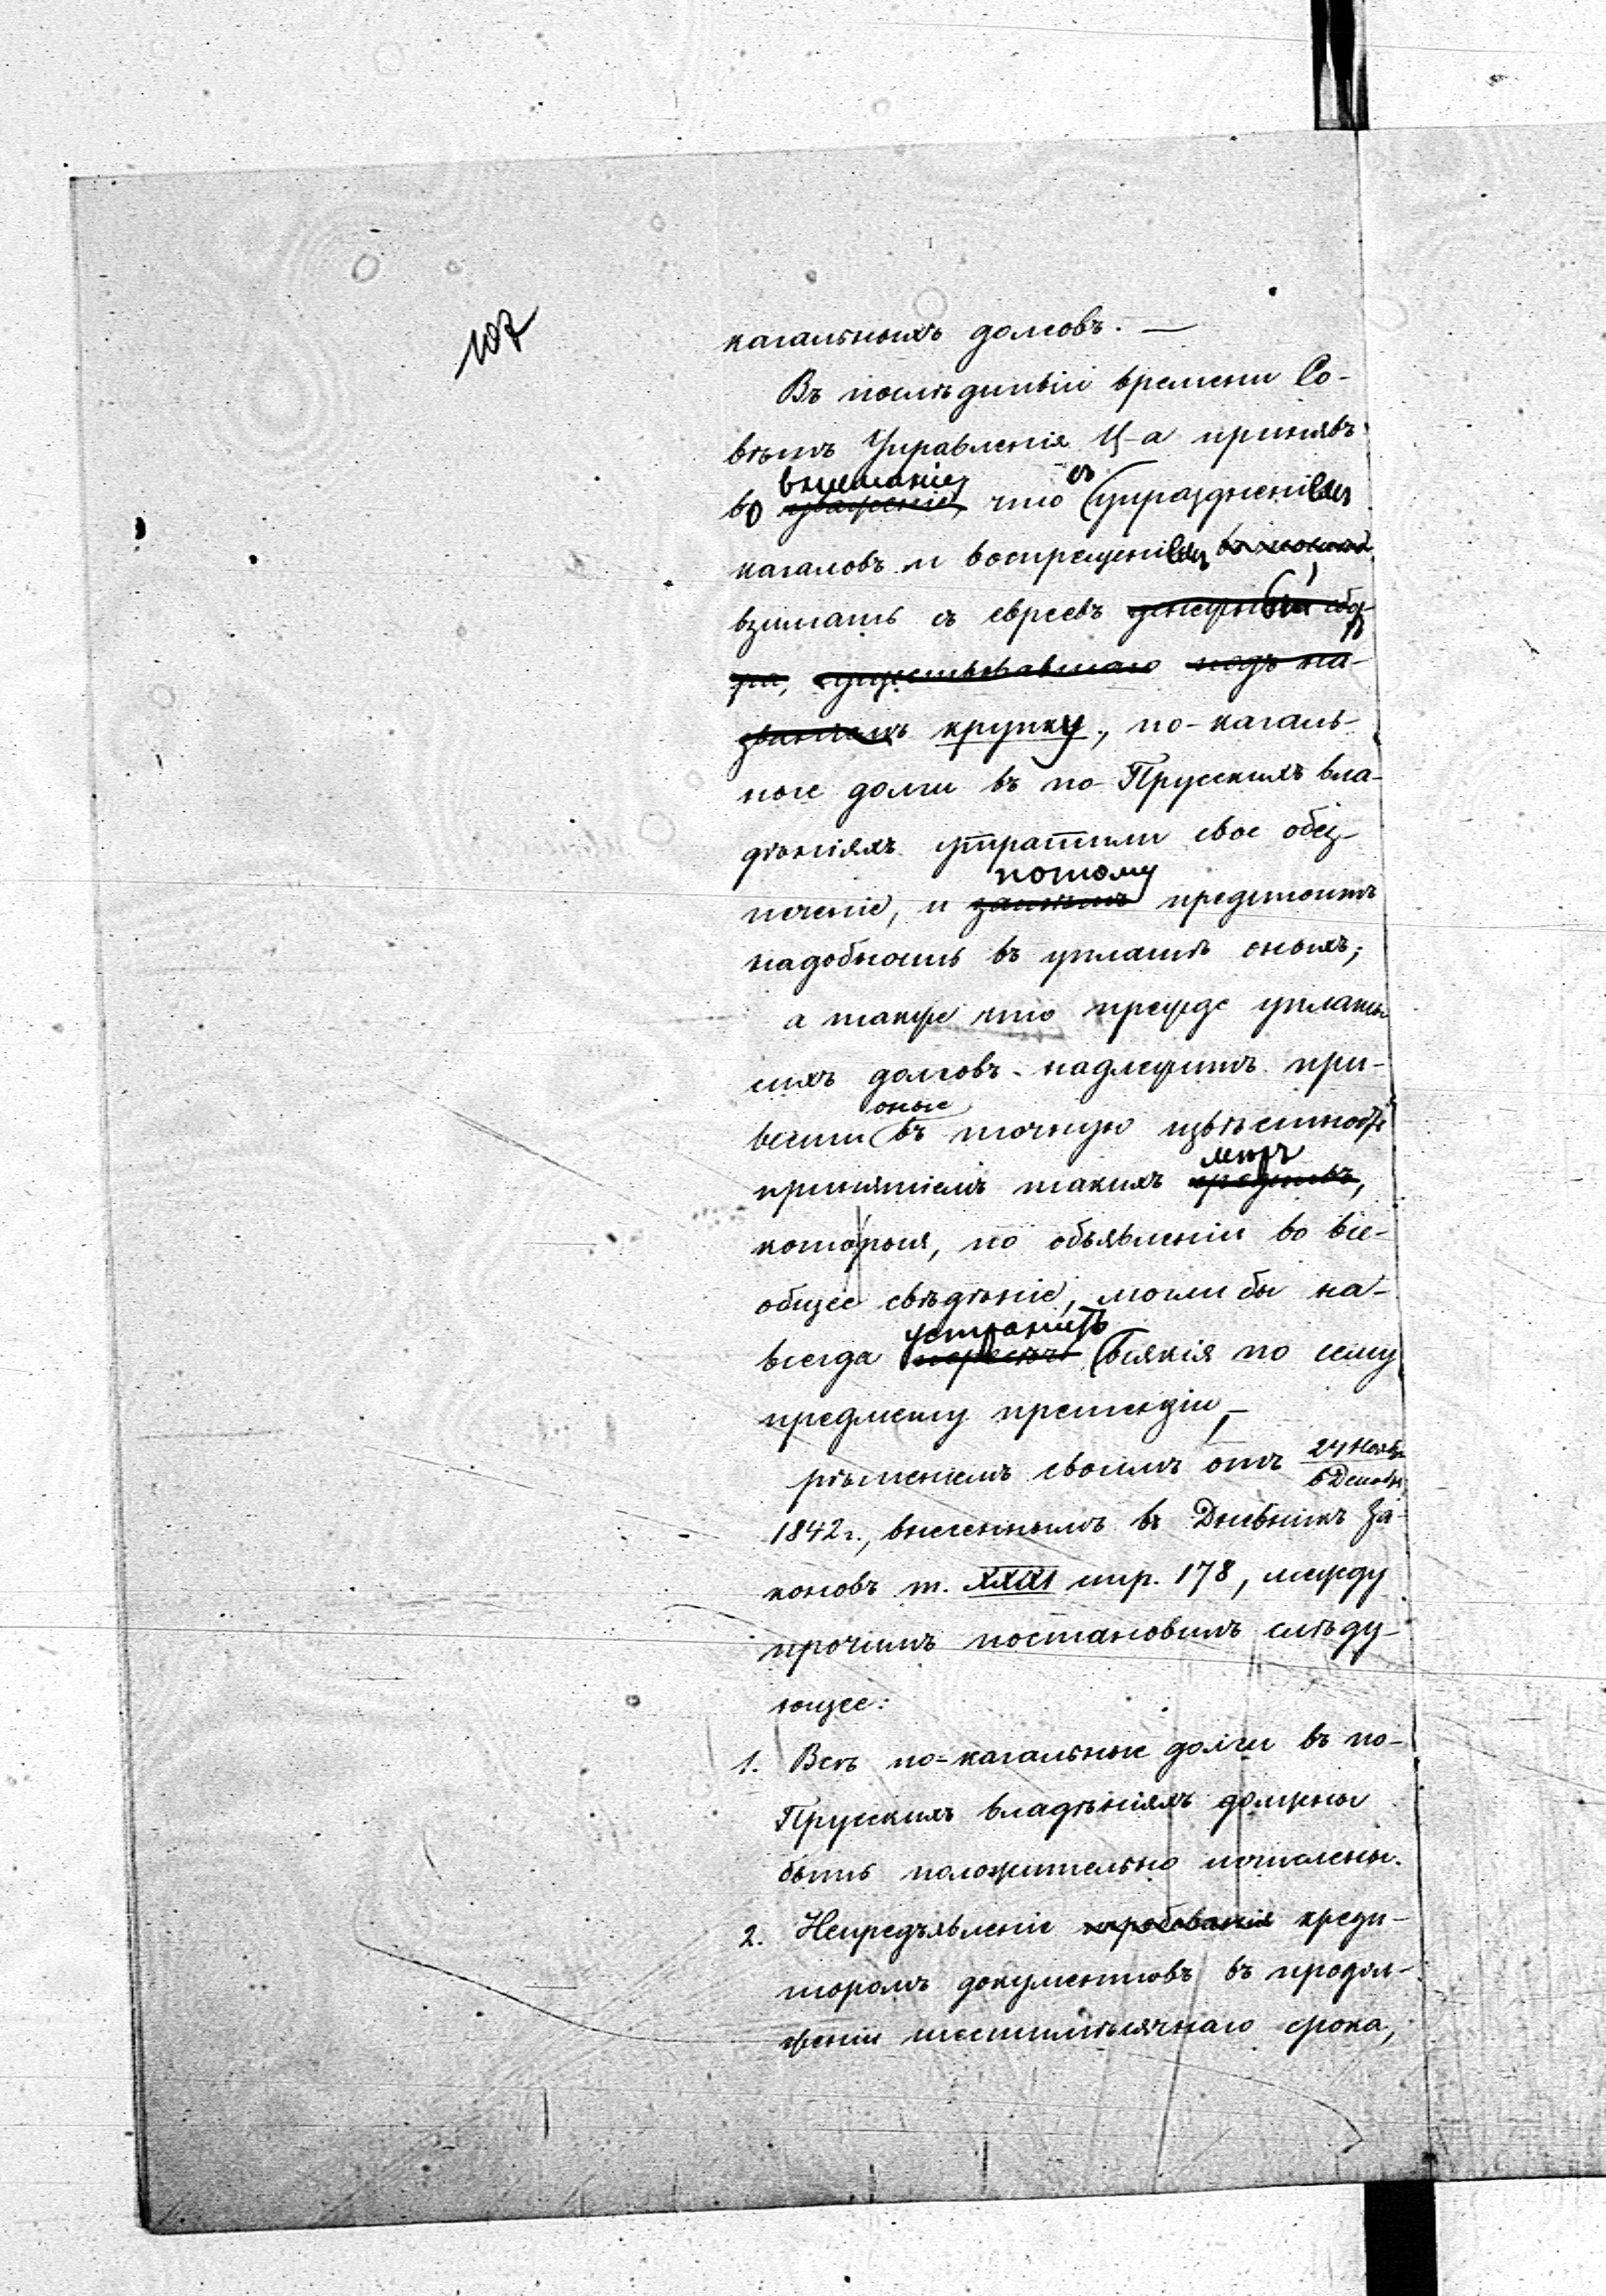 107
кагальныхъ долговъ. —
Въ послѣдствіи времени Со-
вѣтъ Управленія Ц-а принявъ
вниманіе, съ
во уваженіе, что упраздненіемъ
кагаловъ и воспрещеніемъ
взимать съ евреевъ денежный сбо-
ра, существовавшаго подъ на-
званіемъ крупку, по-кагаль-
ные долги въ по-Прусскихъ вла-
дѣніяхъ утратили свое обез-
потому
печеніе, и затѣмъ предстоитъ
надобность въ уплатѣ оныхъ;
а также что прежде уплаты
сихъ долговъ надлежитъ при-
оные
вести въ точную извѣстность
мѣръ
принятіемъ такихъ средствъ,
которыя, по объявленіи во все-
общее свѣдѣніе, могли бы на-
устранить
всегда пресѣчь всякія по сему
предмету претензіи, —
рѣшеніемъ своимъ отъ 24 Ноябр
6 Декабр
1842 г., внесеннымъ въ Дневникъ За-
коновъ т. XXXI стр. 178, между
прочимъ постановилъ слѣду-
ющее:
1. Всѣ по-кагальные долги въ по-
Прусскихъ владѣніяхъ должны
быть положительно исчислены.
2. Непредъявленіе требованія креди-
торомъ документовъ въ продол-
женіи шестимѣсячнаго срока,